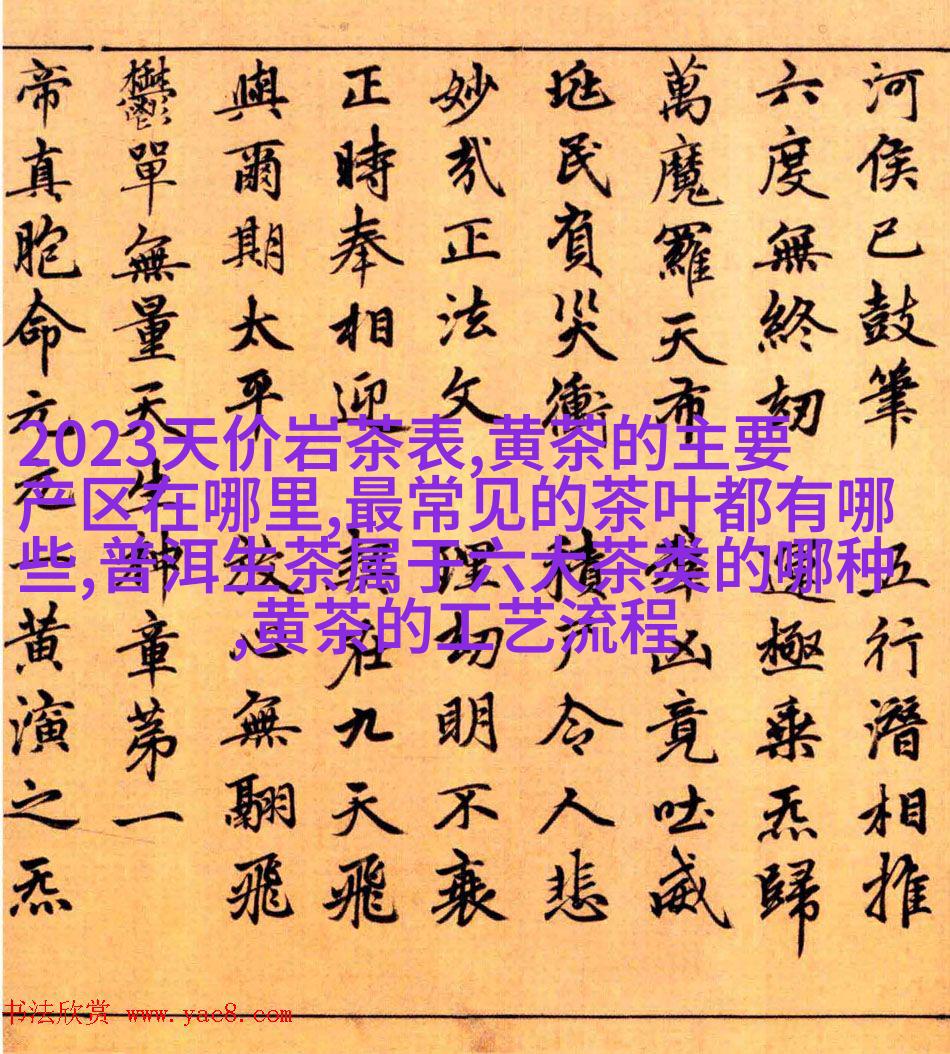 河侯已鼓筆 五行潛相推
六度無終劫 極乘炁歸
萬魔羅天布 凶竟吐威
民負災衝 積尸令人悲
妙哉正法文 理切明不衰
正時奉相迎 在九天飛
與爾期太平 心無翮飛
鬱單無量天生神章第一
帝真胞命元元一黃演之炁
2023天价岩茶表,黄茶的主要
产区在哪里,最常见的茶叶都有哪
些,普洱生茶属于六大茶类的哪种
,黄茶的工艺流程
书法欣赏 www.yac8.com